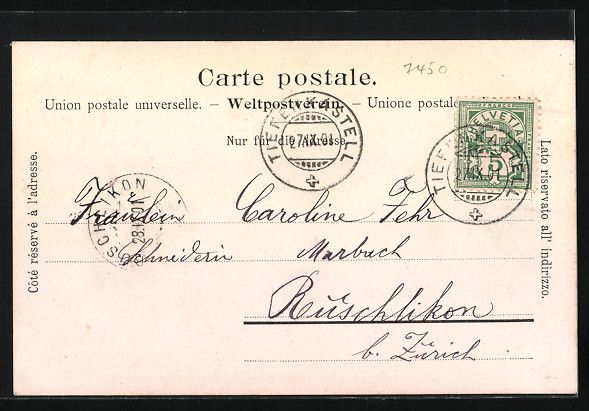 7450
Carte postale.
Union postale universelle. – Weltpostverein. – Unione postale
Nur für die Adresse.
TIEFENKASTELL
27.IX.01
HELVETIA
FRANCO
5
TIEFENKASTELL
RÜSCHLIKON
28.IX.01
Fräulein Caroline Fehr
Schneiderin Marbach
Rüschlikon
b. Zürich
Côté réservé à l'adresse.
Lato riservato all' indirizzo.